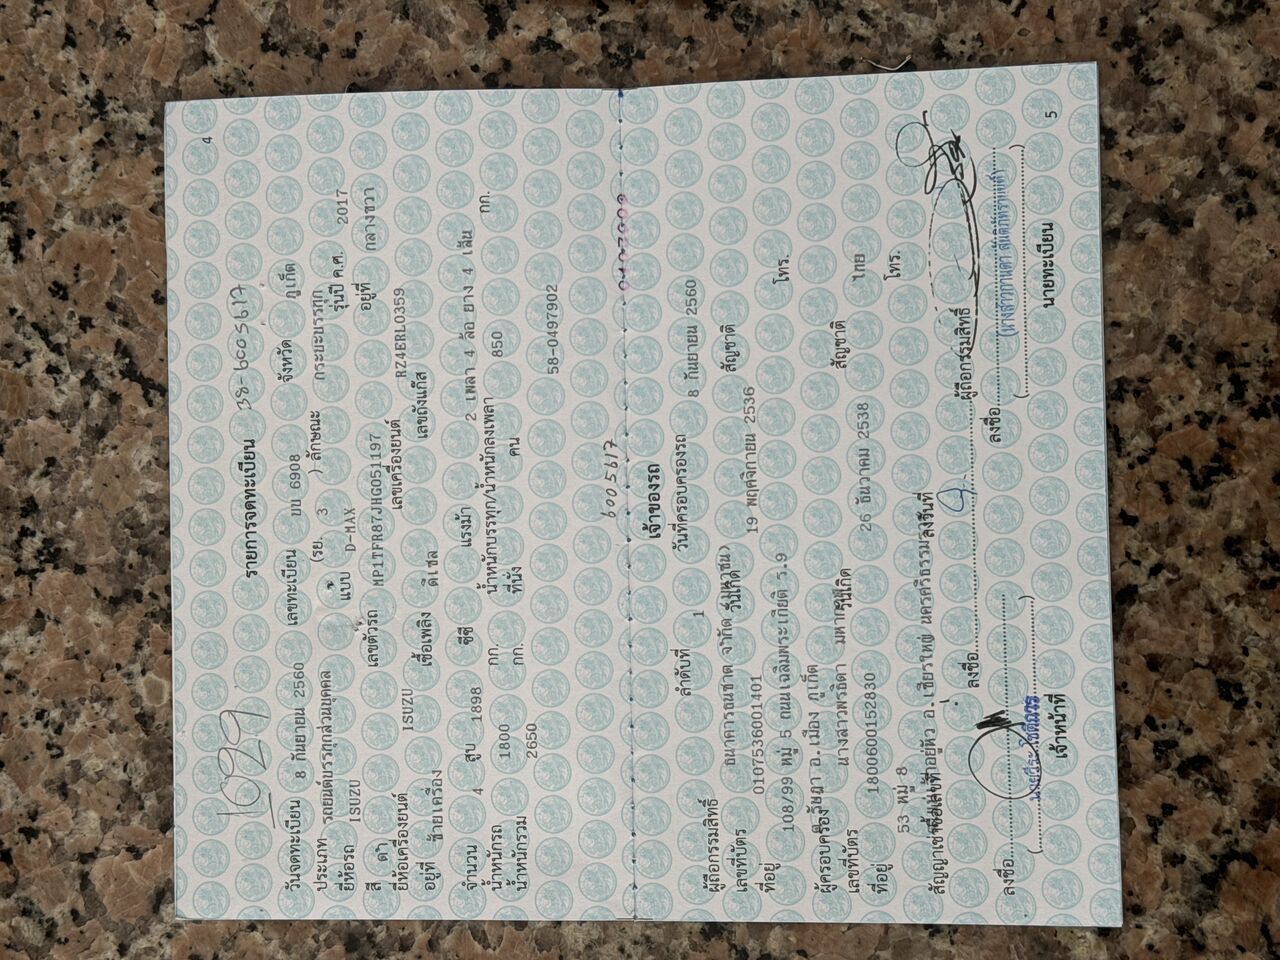 4
1029
รายการจดทะเบียน
38-6005617
วันจดทะเบียน 8 กันยายน 2560 เลขทะเบียน บบ 6908 จังหวัด ภูเก็ต
ประเภท รถยนต์บรรทุกส่วนบุคคล (รย. 3 ) ลักษณะ กระบะบรรทุก
ยี่ห้อรถ ISUZU แบบ D-MAX รุ่นปี ค.ศ. 2017
สี ดำ เลขตัวรถ MP1TFR87JHG051197 อยู่ที่ กลางขวา
ยี่ห้อเครื่องยนต์ ISUZU เลขเครื่องยนต์ RZ4ERL0359
อยู่ที่ ซ้ายเครื่อง เชื้อเพลิง ดีเซล เลขถังแก๊ส
จำนวน 4 สูบ 1898 ซีซี แรงม้า 2 เพลา 4 ล้อ ยาง 4 เส้น
น้ำหนักรถ 1800 กก. น้ำหนักบรรทุก/น้ำหนักลงเพลา 850 กก.
น้ำหนักรวม 2650 กก. ที่นั่ง คน
58-0497902
6005617
เจ้าของรถ
ลำดับที่ 1 วันที่ครอบครองรถ 8 กันยายน 2560
ผู้ถือกรรมสิทธิ์ ธนาคารธนชาต จำกัด (มหาชน) สัญชาติ
เลขที่บัตร 0107536001401 วันเกิด 19 พฤศจิกายน 2536
ที่อยู่ 108/99 หมู่ 5 ถนนเฉลิมพระเกียรติ ร.9 โทร.
ต.รัษฎา อ.เมือง ภูเก็ต
ผู้ครอบครอง นางสาวพรธิดา สัญชาติ ไทย
เลขที่บัตร 1800600152830 วันเกิด 26 ธันวาคม 2538
ที่อยู่ 53 หมู่ 8 โทร.
อ.เชียรใหญ่ นครศรีธรรมราช
สัญญาเช่าซื้อเลขที่ ลงวันที่
ลงชื่อ ผู้ถือกรรมสิทธิ์
ลงชื่อ ลงชื่อ
เจ้าหน้าที่ นายทะเบียน
5